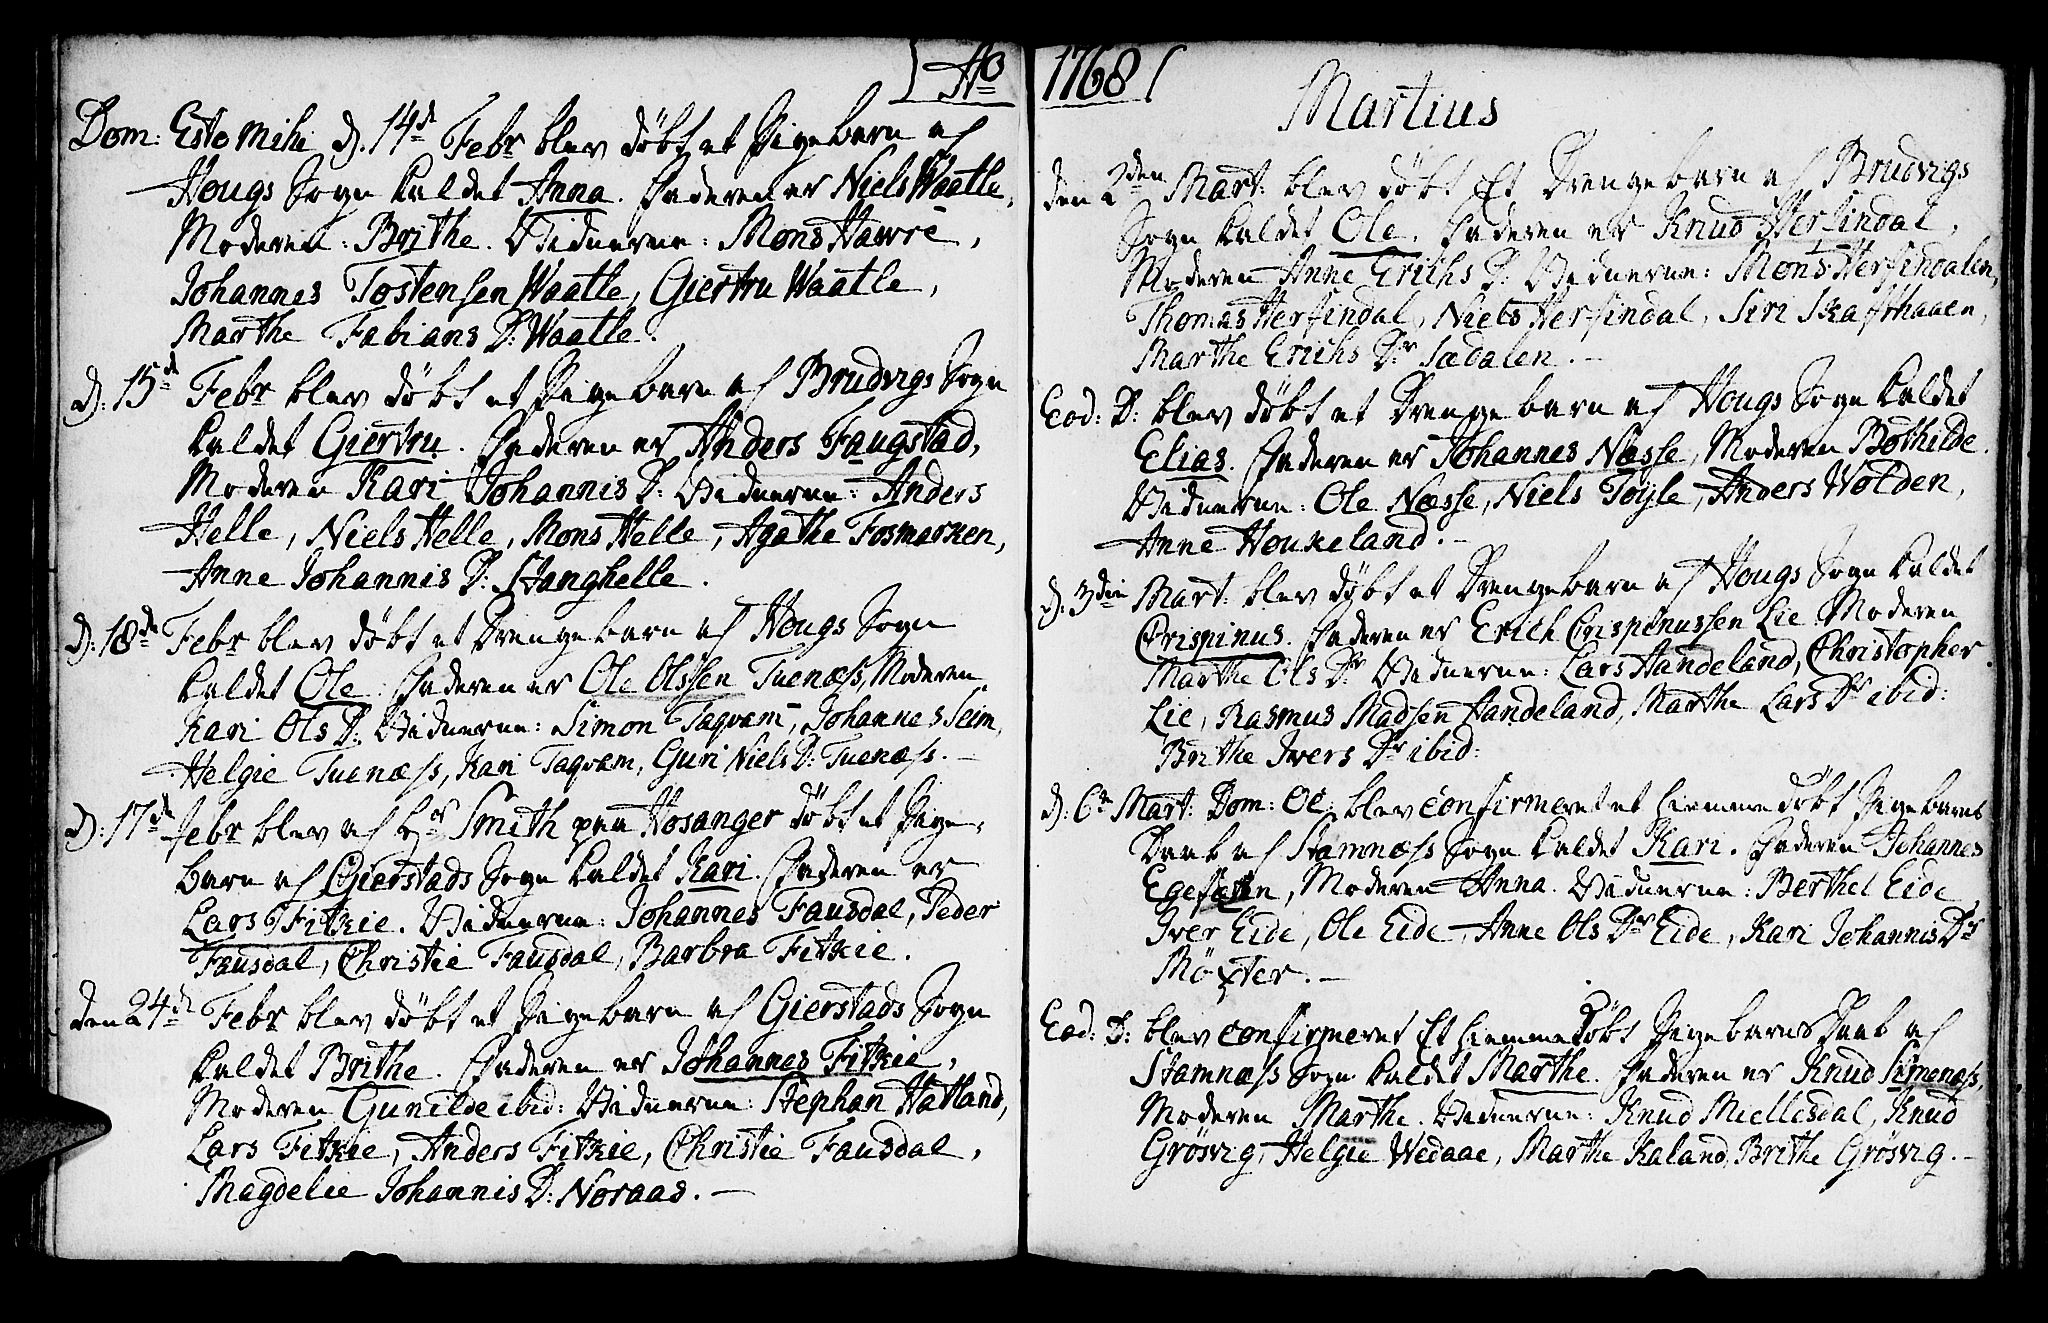 Ao
Dom: Esto Mihi d. 14de Febr blev døbt et Pigebarn af
Hougs Sogn kaldet Anna. Faderen er Niels Waatle,
Moderen: Brithe. Vidnerne: Mons Hawre,
Johannes Tostensen Waatle, Giertru Waatle,
Marthe Fabians D: Waatle.
d: 15de Febr blev døbt et Pigebarn af Brudvigs Sogn
kaldet Giertru. Faderen er Anders Faugstad,
Moderen Kari Johannis D: Vidnerne: Anders
Helle, Niels Helle, Mons Helle, Agathe Fosmarken,
Anne Johannis D: Stanghelle.
d: 18de Febr blev døbt et Drengebarn af Hougs Sogn
kaldet Ole. Faderen er Ole Olssen Tuenæss, Moderen
Kari Ols D: Vidnerne: Simon Taqvam, Johannes Seim,
Helgie Tuenæss, Kari Taqvam, Guri Niels D: Tuenæss.
d: 17de Febr blev af Hr Smith paa Hosanger døbt et Pige-
barn af Gierstads Sogn kaldet Kari. Faderen er
Lars Fitkie. Vidnerne: Johannes Fausdal, Peder
Fausdal, Christie Fausdal, Barbra Fitkie.
den 24de Febr blev døbt et Pigebarn af Gierstads Sogn
kaldet Brithe. Faderen er Johannes Fitkie,
Moderen Gunilde ibid: Vidnerne: Stephan Hatland,
Lars Fitkie, Anders Fitkie, Christie Fausdal,
Magdelie Johannis D: Noraas.
1768
Martius
den 2den Mart: blev døbt Et Drengebarn af Brudvigs
Sogn kaldet Ole. Faderen er Knud Hersindal,
Moderen Anne Erichs D: Vidnerne: Mons Hersindalen,
Thomas Hersindal, Niels Hersindal, Siri Skafthaaen,
Marthe Erichs Dr Sædalen.
Eod: D: blev døbt et Drengebarn af Hougs Sogn kaldet
Elias. Faderen er Johannes Næsse, Moderen Bothilde.
Vidnerne: Ole Næsse, Niels Toyle, Anders Wolden,
Anne Houkeland.
d: 3die Mart: blev døbt et Drengebarn af Hougs Sogn kaldet
Crispinus. Faderen er Erich Crispinussen Lie Moderen
Marthe Ols Dr Vidnerne: Lars Handeland, Christopher
Lie, Rasmus Madsen Handeland, Marthe Lars Dr ibid:
Brithe Ivers Dr ibid:
d: 6te Mart: Dom: Oc: blev confirmeret et hiemme døbt Pigebarns
Daab af Stamnæss Sogn kaldet Kari. Faderen Johannes
Moderen Anna. Vidnerne: Berthel Eide
Iver Eide, Ole Eide, Anne Ols Dr Eide, Kari Johannis Dr
Møxter.
Eod: D: blev confirmeret Et hiemmedøbt Pigebarns Daab af
Stamnæss Sogn kaldet Marthe. Faderen er Knud Simenæss,
Moderen Marthe. Vidnerne: Knud Miellesdal, Knud
Grøsvig, Helgie Wedaae, Marthe Kaland, Brithe Grøsvig.